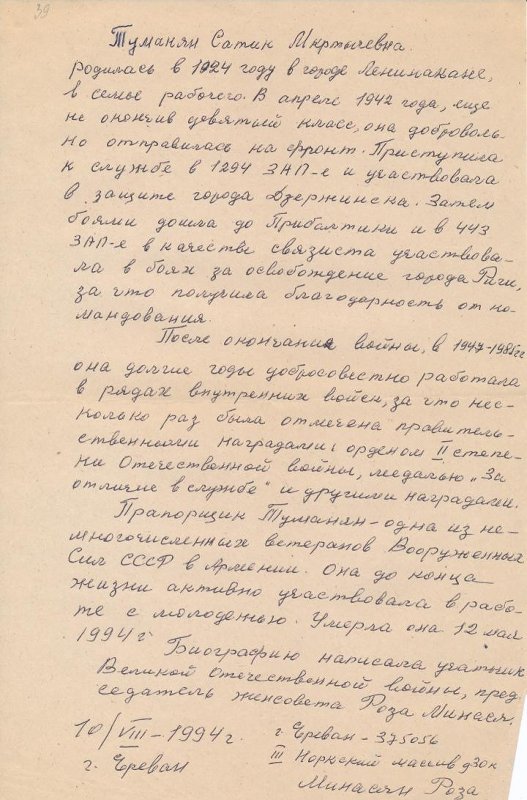 39
Туманян Сатик Мкртычевна.
родилась в 1924 году в городе Ленинакане,
в семье рабочего. В апреле 1942 года, еще
не окончив девятый класс, она доброволь-
но отправилась на фронт. Приступила
к службе в 1294 ЗАП-е и участвовала
в защите города Дзержинска. Затем
боями дошла до Прибалтики и в 443
ЗАП-е в качестве связиста участвова-
ла в боях за освобождение города Риги,
за что получила благодарность от ко-
мандования.
После окончания войны, в 1947-1986 гг
она долгие годы добросовестно работала
в рядах внутренних войск, за что нес-
колько раз была отмечена правитель-
ственными наградами: орденом II степе-
ни Отечественной войны, медалью „За
отличие в службе" и другими наградами.
Прапорщик Туманян - одна из не-
многочисленных ветеранов Вооруженных
Сил СССР в Армении. Она до конца
жизни активно участвовала в рабо-
те с молодежью. Умерла она 12 мая
1994 г
Биографию написала участник
Великой Отечественной войны, пред
седатель женсовета Роза Минасян.
10/VIII - 1994 г.
г. Ереван
г. Ереван - 375056
III Норкский массив д 30к
Минасян Роза